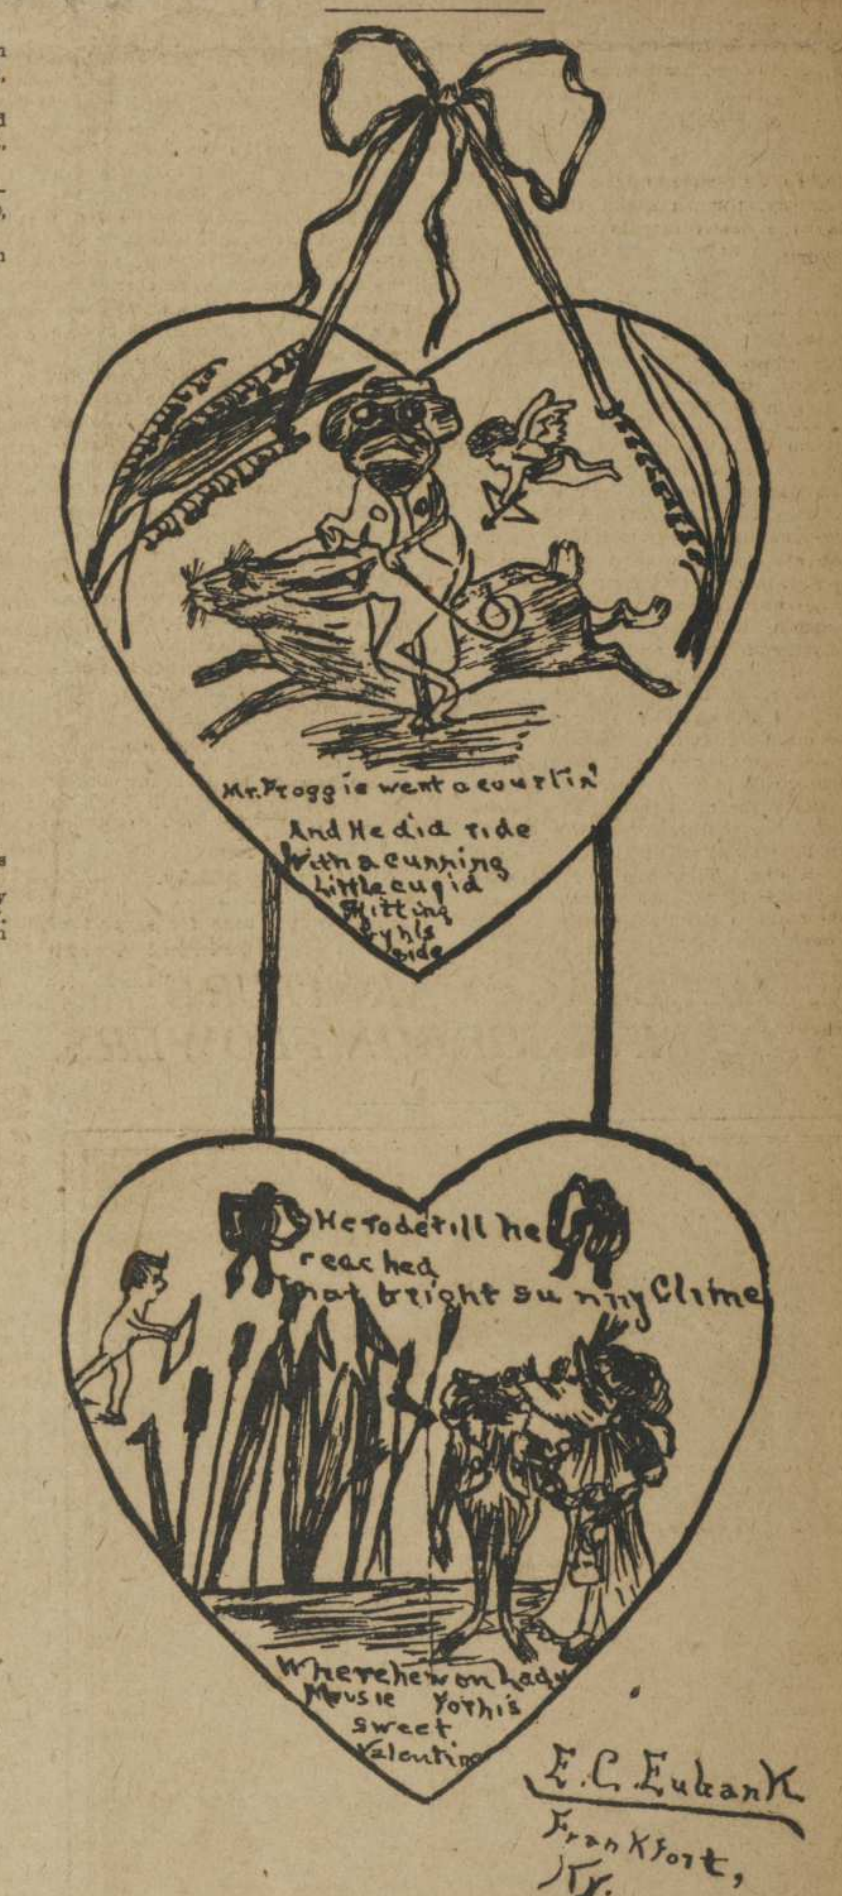 Mr. Froggie went a courtin'
And He did ride
With a cunning
Little cupid
Flitting
By his
side
He rode till he
reached
that bright sunny Clime
Where he won Lady
Mousie For his
sweet
Valentine
E. C. Eubank
Frankfort,
Ky.